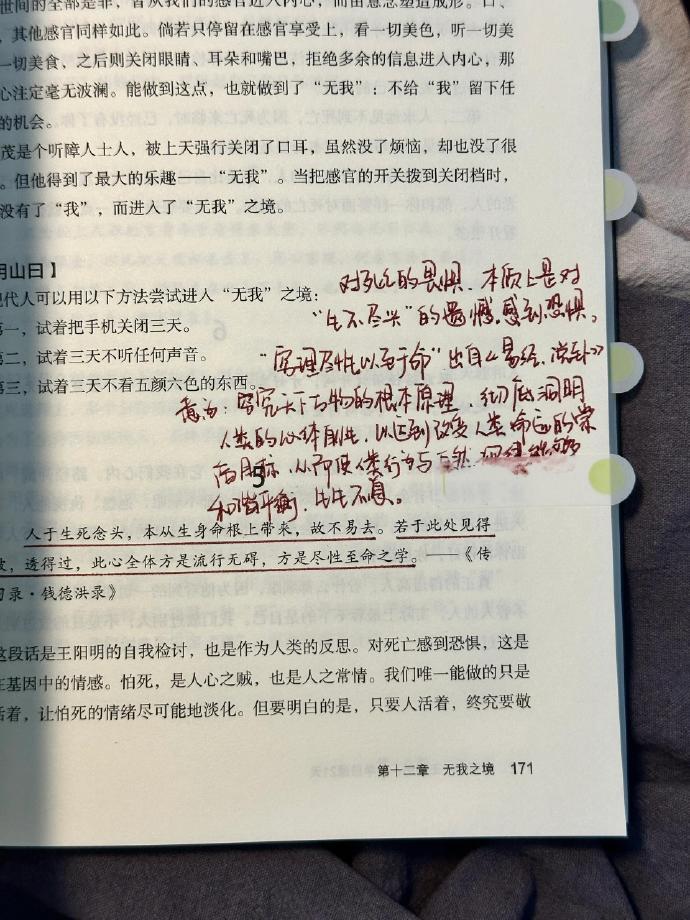 世间的全部是非，皆从我们的感官进入内心，而由意念塑造成形。口、
，其他感官同样如此。倘若只停留在感官享受上，看一切美色，听一切美
一切美食，之后则关闭眼睛、耳朵和嘴巴，拒绝多余的信息进入内心，那
心注定毫无波澜。能做到这点，也就做到了“无我”：不给“我”留下任
的机会。
茂是个听障人士人，被上天强行关闭了口耳，虽然没了烦恼，却也没了很
。但他得到了最大的乐趣——“无我”。当把感官的开关拨到关闭档时，
没有了“我”，而进入了“无我”之境。
明山曰】
现代人可以用以下方法尝试进入“无我”之境：
第一，试着把手机关闭三天。
第二，试着三天不听任何声音。
第三，试着三天不看五颜六色的东西。
对死亡的畏惧，本质上是对
“生不尽兴”的遗憾，感到恐惧。
“穷理尽性以至于命”出自《易经·说卦》
意为：穷究天下万物的根本原理，彻底洞明
人类的心体自性，以达到改变人类命运的崇
高目标，从而使人类行为与自然
和谐平衡，生生不息。
5
人于生死念头，本从生身命根上带来，故不易去。若于此处见得
破，透得过，此心全体方是流行无碍，方是尽性至命之学。——《传
习录·钱德洪录》
这段话是王阳明的自我检讨，也是作为人类的反思。对死亡感到恐惧，这是
在基因中的情感。怕死，是人心之贼，也是人之常情。我们唯一能做的只是
活着，让怕死的情绪尽可能地淡化。但要明白的是，只要人活着，终究要敬
第十二章 无我之境 171